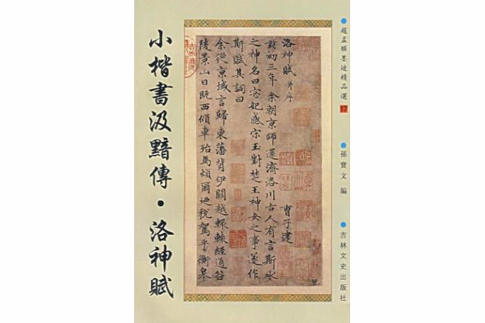 趙孟頫墨迹精品選
孫寶文 編
吉林文史出版社
小楷書汲黯傳・洛神賦
洛神賦 并序
曹子建
黃初三年余朝京師還濟洛川古人有言斯水
之神名曰宓妃感宋玉對楚王神女之事遂作
斯賦其詞曰
余從京域言歸東藩背伊闕越轘轅經通谷
陵景山日既西傾車殆馬煩爾迺稅駕乎蘅皋